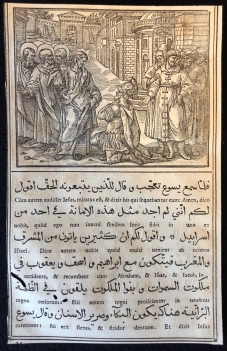 فلما سمع يسوع تعجب و قال للذين يتبعونه الحق اقول
Cùm autem audisset Iesus, miratus est, & dixit his qui sequebantur eum: Amen, dico
لكم انني لم اجد مثل هذه الامانة في احد من
vobis, quòd ego non inueni similem huic fidei in vno ex
اسراييل و اقول لكم ان كثيرين ياتون من المشرق
Israel. Dico autem vobis quòd multi venient ab oriente
و المغرب فيتكون مع ابراهيم و اسحق و يعقوب في
occidente, & recumbent cum Abraham, & Isac, & Iacob, in
ملكوت السموات و بنوا الملكوت يلقون في الظلمة
regno cœlorum: filii autem regni proiicientur in tenebras
البرانية هناك يكون البكا و صرير الاسنان و قال يسوع
exteriores: ibi erit fletus, & stridor dentium. Et dixit Iesus